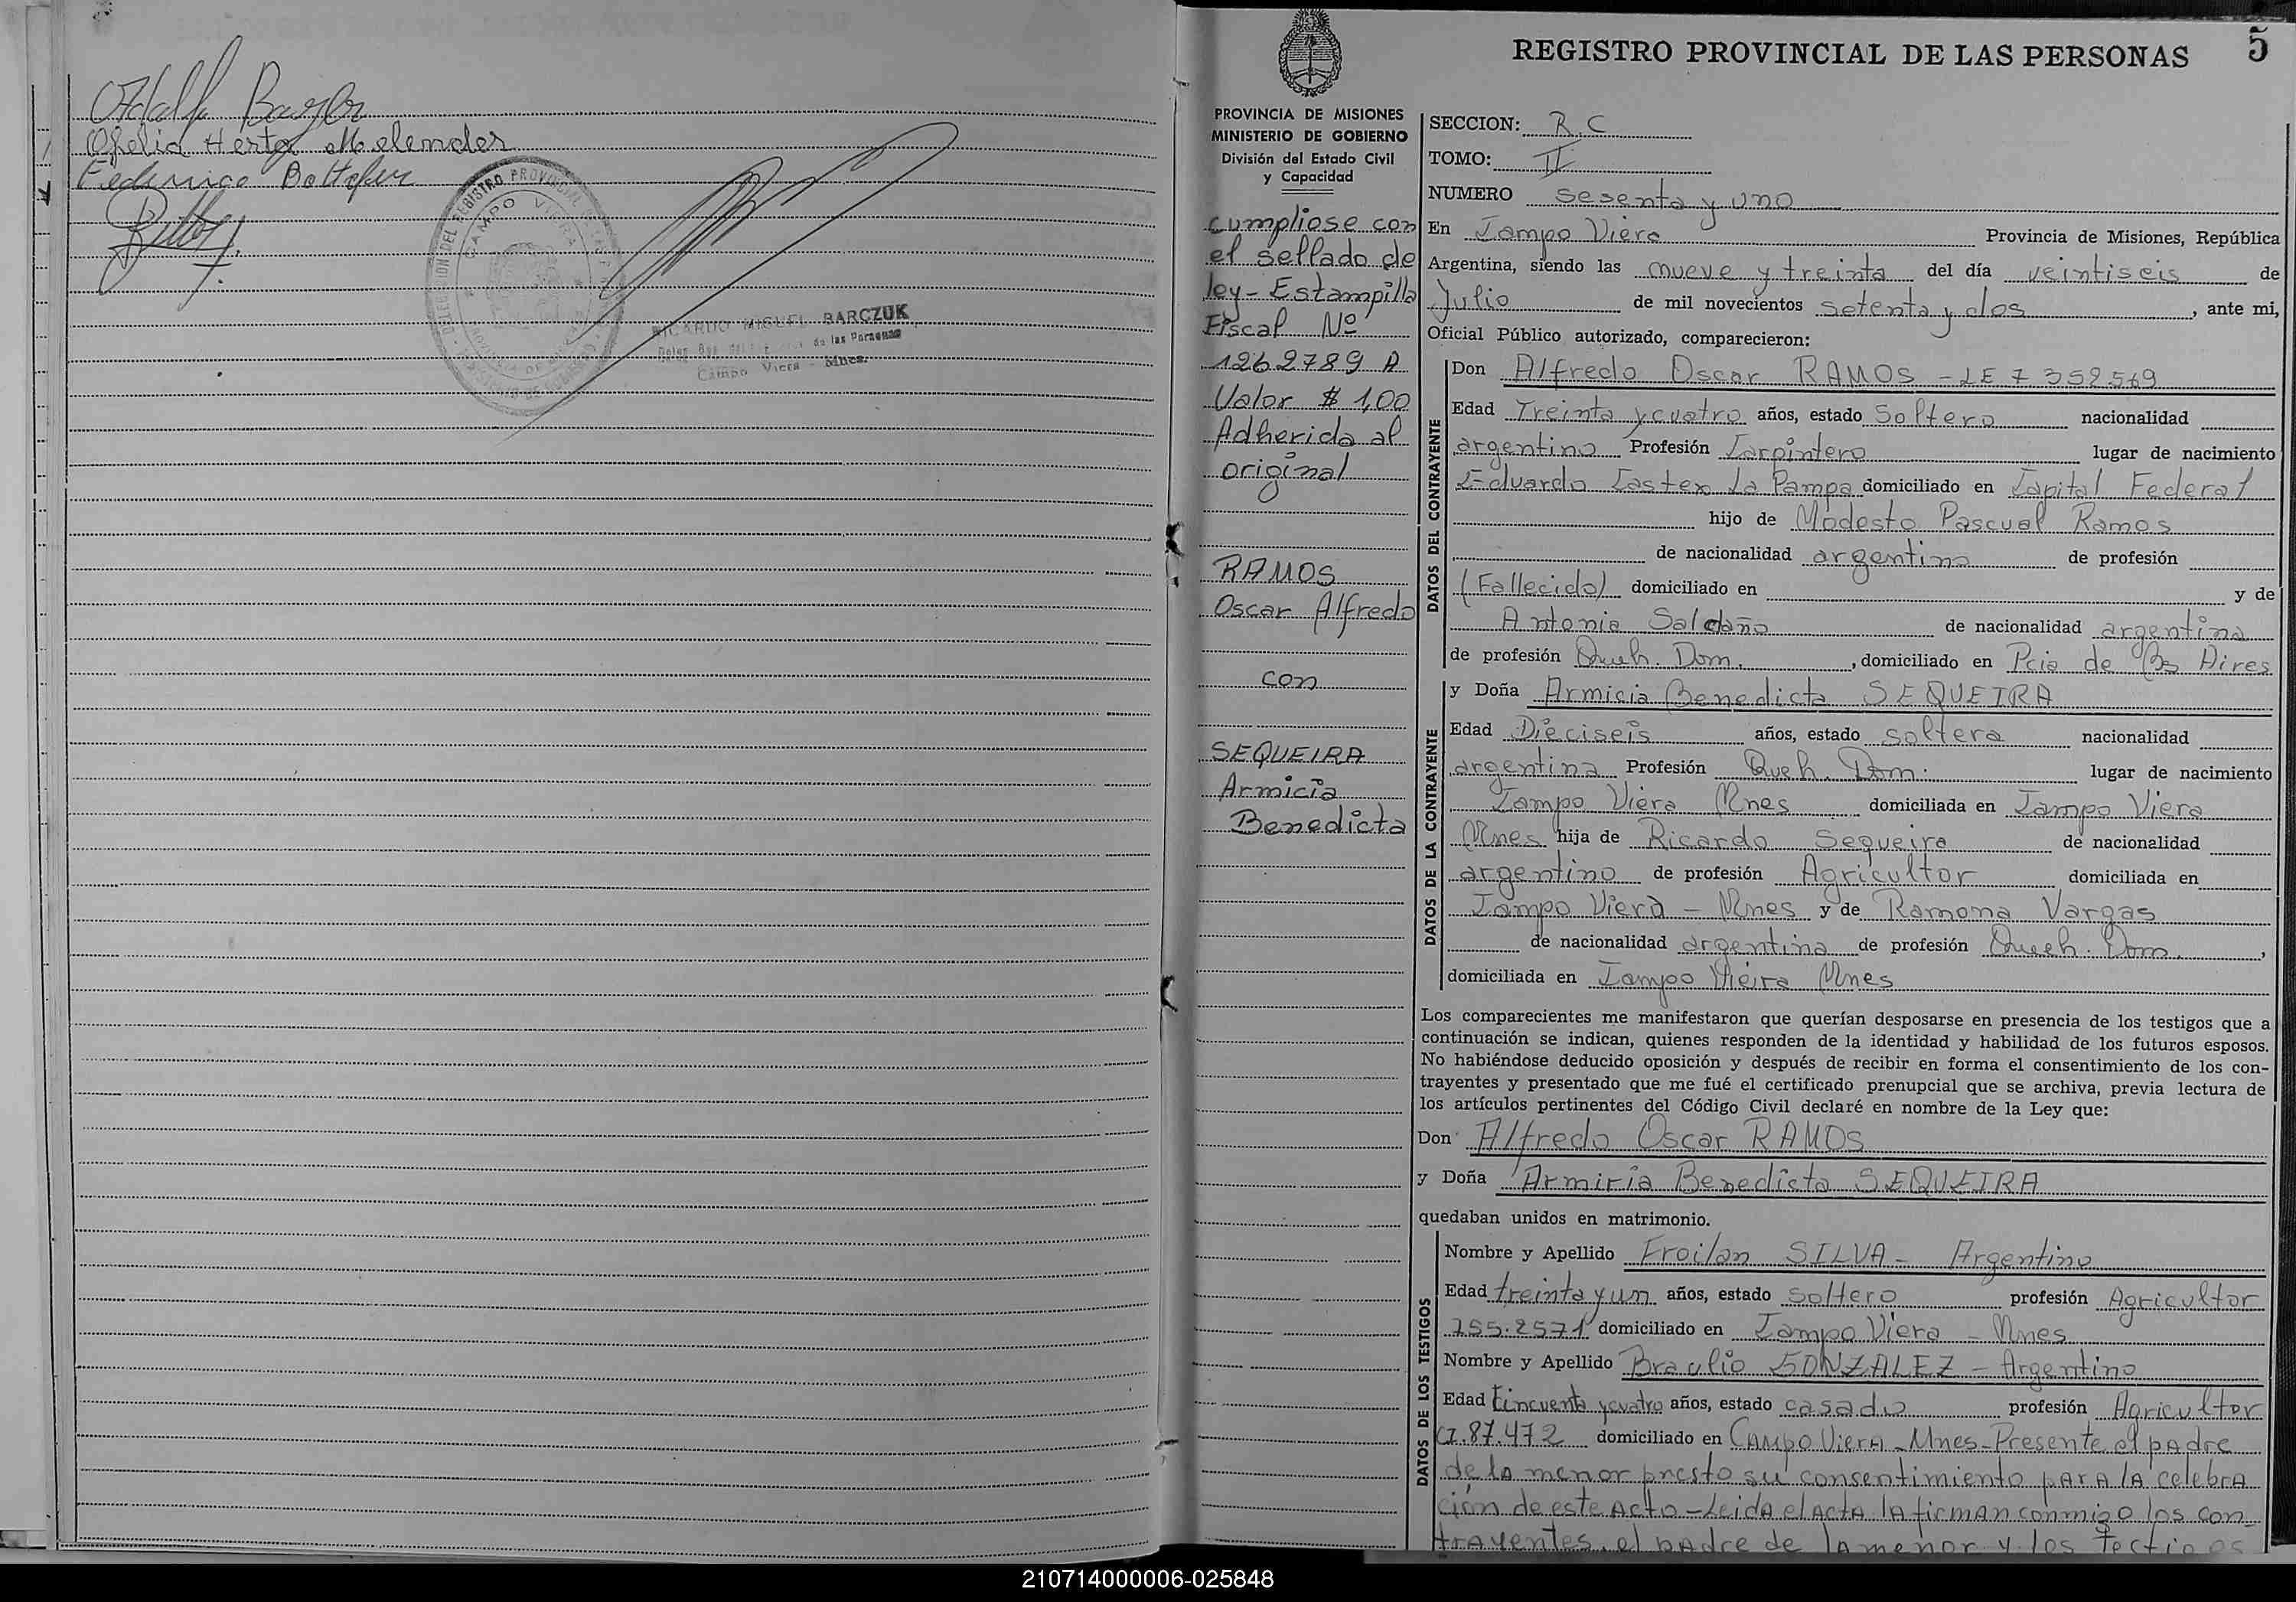 Ofelia Herta Melender
Federico
DELEGACION DEL REGISTRO PROVINCIAL
CAMPO VIERA
RICARDO MIGUEL BARCZUK
de las Personas
Campo Viera - Mnes.
REGISTRO PROVINCIAL DE LAS PERSONAS 5
PROVINCIA DE MISIONES
MINISTERIO DE GOBIERNO
División del Estado Civil
y Capacidad
cumpliose con
el sellado de
ley - Estampilla
Fiscal Nº
1262789 A
Valor $ 1,00
Adherida al
original
RAMOS
Oscar Alfredo
con
SEQUEIRA
Armicia
Benedicta
SECCION: R.C
TOMO: II
NUMERO sesenta y uno
En Campo Viera Provincia de Misiones, República
Argentina, siendo las nueve y treinta del día veintiseis de
Julio de mil novecientos setenta y dos, ante mi,
Oficial Público autorizado, comparecieron:
DATOS DEL CONTRAYENTE
Don Alfredo Oscar RAMOS - LE 7 352569
Edad Treinta y cuatro años, estado Soltero nacionalidad
argentino Profesión Carpintero lugar de nacimiento
Eduardo Castex La Pampa domiciliado en Capital Federal
hijo de Modesto Pascual Ramos
de nacionalidad argentino de profesión
(Fallecido) domiciliado en y de
Antonia Saldaño de nacionalidad argentina
de profesión Queh. Dom., domiciliado en Pcia de Bs Aires
DATOS DE LA CONTRAYENTE
y Doña Armicia Benedicta SEQUEIRA
Edad Dieciseis años, estado soltera nacionalidad
argentina Profesión Queh. Dom. lugar de nacimiento
Campo Viera Mnes domiciliada en Campo Viera
Mnes hija de Ricardo Sequeira de nacionalidad
argentino de profesión Agricultor domiciliada en
Campo Viera - Mnes y de Ramona Vargas
de nacionalidad argentina de profesión Queh. Dom.,
domiciliada en Campo Viera Mnes
Los comparecientes me manifestaron que querían desposarse en presencia de los testigos que a
continuación se indican, quienes responden de la identidad y habilidad de los futuros esposos.
No habiéndose deducido oposición y después de recibir en forma el consentimiento de los con-
trayentes y presentado que me fué el certificado prenupcial que se archiva, previa lectura de
los artículos pertinentes del Código Civil declaré en nombre de la Ley que:
Don Alfredo Oscar RAMOS
y Doña Armicia Benedicta SEQUEIRA
quedaban unidos en matrimonio.
DATOS DE LOS TESTIGOS
Nombre y Apellido Froilan SILVA - Argentino
Edad treinta y un años, estado soltero profesión Agricultor
755.2571 domiciliado en Campo Viera - Mnes
Nombre y Apellido Braulio GONZALEZ - Argentino
Edad Cincuenta y cuatro años, estado casado profesión Agricultor
CI.87.472 domiciliado en Campo Viera - Mnes - Presente el padre
de la menor presto su consentimiento para la celebra
ción de este Acto - Leida el Acta la firman conmigo los con-
trayentes, el padre de la menor y los testigos
210714000006-025848